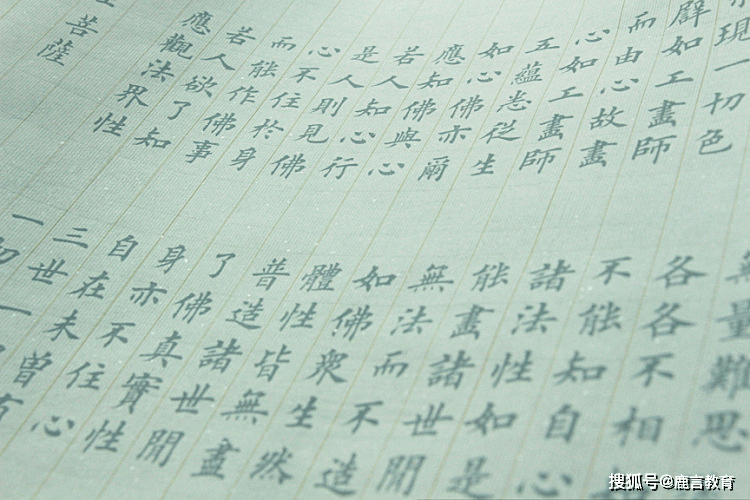 無量難思
現一切色
各各不相
譬如工畫師
不能知自心
而由心故畫
諸法性如是
心如工畫師
能畫諸世間
五蘊悉從生
無法而不造
如心佛亦爾
如佛眾生然
應知佛與心
體性皆無盡
若人知心行
普造諸世間
是人則見佛
了佛真實性
心不住於身
身亦不住心
而能作佛事
自在未曾有
若人欲了知
三世一
應觀法界性
一切
菩薩
搜狐号@鹿言教育